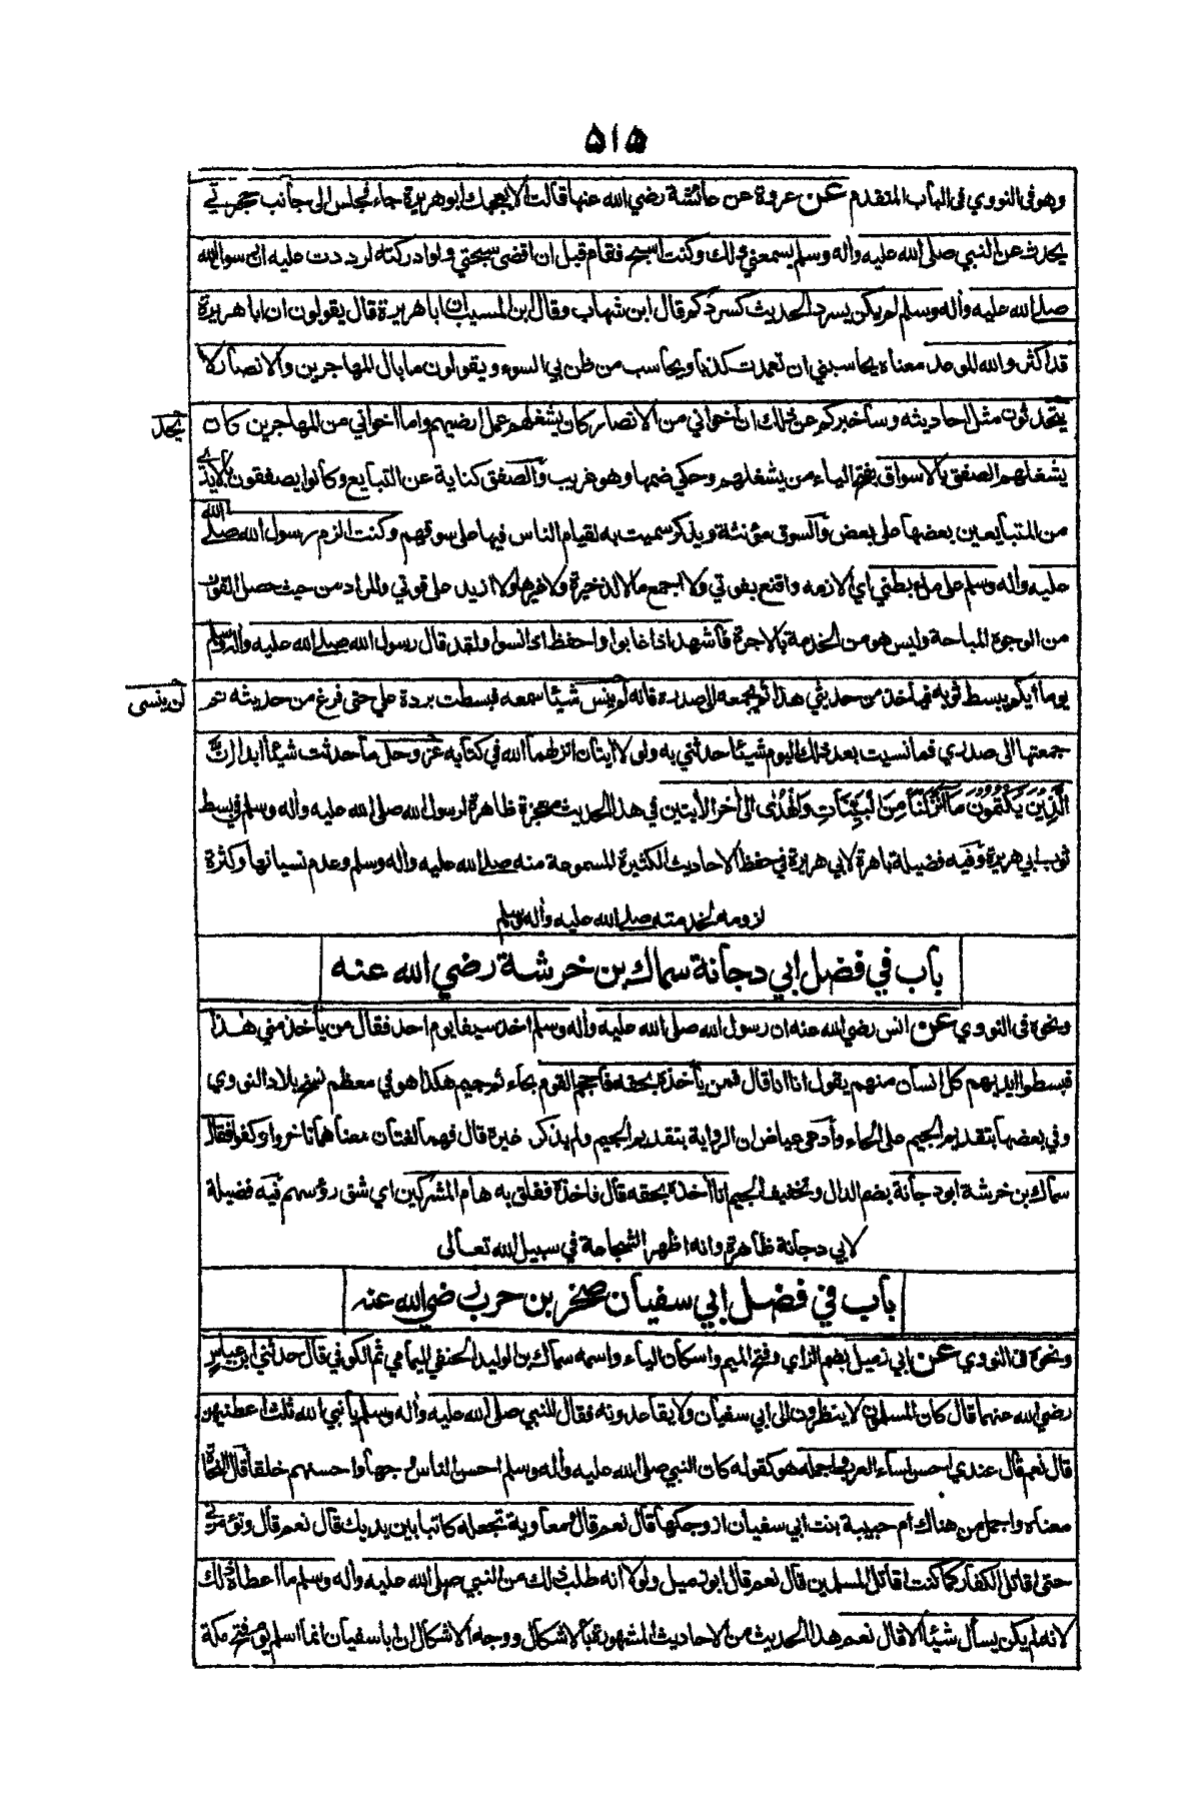 ٥١٥
وهو في النووي في الباب المتقدم عن عروة عن عائشة رضي الله عنها قالت الا يعجبك ابو هريرة جاء فجلس الى جانب حجرتي
يحدث عن النبي صلى الله عليه وأله وسلم يسمعني ذلك وكنت اسبح فقام قبل ان اقضي سبحتي ولو ادركته لرددت عليه ان رسول الله
صلى الله عليه وأله وسلم لم يكن يسرد الحديث كسردكم قال ابن شهاب وقال ابن المسيب ان ابا هريرة قال يقولون ان ابا هريرة
قد اكثر والله الموعد معناه يحاسبني ان تعمدت كذبا ويحاسب من ظن بي السوء ويقولون ما بال المهاجرين والانصار لا
يتحدثون مثل احاديثه وسأخبركم عن ذلك ان اخواني من الانصار كان يشغلهم عمل ارضيهم واما اخواني من المهاجرين كان
يحد
يشغلهم الصفق بالاسواق بفتح الياء من يشغلهم وحكي ضمها وهو غريب والصفق كناية عن التبايع وكانوا يصفقون بالايدي
من المتبايعين بعضها على بعض والسوق مؤنثة ويذكر سميت به لقيام الناس فيها على سوقهم وكنت الزم رسول الله صلى الله
عليه وأله وسلم على ملء بطني اي الازمه واقنع بقوتي ولا اجمع مالا لذخيرة ولا غيرها ولا ازيد على قوتي والمراد من حيث حصل القوت
من الوجوه المباحة وليس هو من الخدمة بالاجرة فاشهد اذا غابوا واحفظ اذا نسوا ولقد قال رسول الله صلى الله عليه وأله وسلم
يوما ايكم يبسط ثوبه فيأخذ من حديثي هذا ثم يجمعه الى صدره فانه لم ينس شيئا سمعه فبسطت بردة علي حتى فرغ من حديثه ثم
لن ينسى
جمعتها الى صدري فما نسيت بعد ذلك اليوم شيئا حدثني به ولولا أيتان انزلهما الله في كتابه عز وجل ما حدثت شيئا ابدا ان
الَّذِيْنَ يَكْتُمُوْنَ مَا أَنْزَلْنَا مِنَ الْبَيِّنَاتِ وَالْهُدٰى الى أخر الأيتين في هذا الحديث معجزة ظاهرة لرسول الله صلى الله عليه وأله وسلم في بسط
ثوب ابي هريرة وفيه فضيلة باهرة لابي هريرة في حفظ الاحاديث الكثيرة المسموعة منه صلى الله عليه وأله وسلم وعدم نسيانها وكثرة
لزومه لخدمته صلى الله عليه وأله وسلم
باب في فضل ابي دجانة سماك بن خرشة رضي الله عنه
ونحوه في النووي عن انس رضي الله عنه ان رسول الله صلى الله عليه وأله وسلم اخذ سيفا يوم احد فقال من يأخذ مني هذا
فبسطوا ايديهم كل انسان منهم يقول انا انا قال فمن يأخذه بحقه فاحجم القوم بحاء ثم جيم هكذا هو في معظم نسخ بلاد النووي
وفي بعضها بتقديم الجيم على الحاء وادعى عياض ان الرواية بتقديم الجيم ولم يذكر غيره قال فهما لغتان معناهما تاخروا وكفوا فقال
سماك بن خرشة ابو دجانة بضم الدال وتخفيف الجيم انا أخذه بحقه قال فاخذه ففلق به هام المشركين اي شق رؤسهم فيه فضيلة
لابي دجانة ظاهرة وانه اظهر الشجاعة في سبيل الله تعالى
باب في فضل ابي سفيان صخر بن حرب رضي الله عنه
ونحوه في النووي عن ابي زميل بضم الزاي وفتح الميم واسكان الياء واسمه سماك بن الوليد الحنفي اليمامي ثم الكوفي قال حدثني ابن عباس
رضي الله عنهما قال كان المسلمون لا ينظرون الى ابي سفيان ولا يقاعدونه فقال للنبي صلى الله عليه وأله وسلم يا نبي الله ثلث اعطنيهن
قال نعم قال عندي احسن نساء العرب واجمله هو كقوله كان النبي صلى الله عليه وأله وسلم احسن الناس وجها واحسنهم خلقا قال النحاة
معناه واجمل من هناك ام حبيبة بنت ابي سفيان ازوجكها قال نعم قال ومعاوية تجعله كاتبا بين يديك قال نعم قال وتؤمرني
حتى اقاتل الكفار كما كنت اقاتل المسلمين قال نعم قال ابو زميل ولولا انه طلب ذلك من النبي صلى الله عليه وأله وسلم ما اعطاه ذلك
لانه لم يكن يسأل شيئا الا قال نعم هذا الحديث من الاحاديث المشهورة بالاشكال ووجه الاشكال ان ابا سفيان انما اسلم يوم فتح مكة